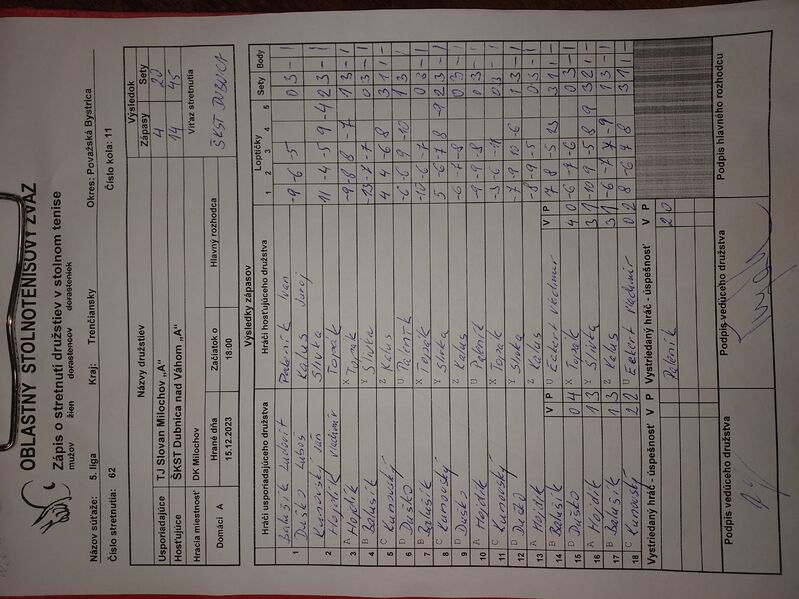 OBLASTNÝ STOLNOTENISOVÝ ZVÄZ
Zápis o stretnutí družstiev v stolnom tenise
mužov žien dorastencov dorasteniek
Názov súťaže: 5. liga Kraj: Trenčiansky Okres: Považská Bystrica
Číslo stretnutia: 62 Číslo kola: 11
Názvy družstiev Výsledok
Zápasy Sety
Usporiadajúce TJ Slovan Milochov „A“ 4 20
Hosťujúce ŠKST Dubnica nad Váhom „A“ 14 45
Hracia miestnosť DK Milochov Víťaz stretnutia
Domáci A Hrané dňa Začiatok o Hlavný rozhodca ŠKST DUBNICA
15.12.2023 18:00
Výsledky zápasov
Hráči usporiadajúceho družstva Hráči hosťujúceho družstva Loptičky Sety Body
1 2 3 4 5
1 Balušík Ľudovít Ivan -9 -6 -5 0 3 - 1
Duško Ľuboš Kalus Juraj
2 Kunovský Ján Slivka 11 -4 -5 9 -4 2 3 - 1
Hojdík Vladimír Topák
3 A Hojdík X Topák -9 -8 8 -7 1 3 - 1
4 B Balušík Y Slivka -13 -7 -7 0 3 - 1
5 C Kunovský Z Kalus 4 4 -6 8 3 1 1 -
6 D Duško U -6 -6 9 -10 1 3 - 1
7 B Balušík X Topák -10 -6 -7 0 3 - 1
8 C Kunovský Y Slivka 5 -6 -7 8 -9 2 3 - 1
9 D Duško Z Kalus -6 -7 -8 0 3 - 1
10 A Hojdík U 0 3 - 1
11 C Kunovský X Topák -3 -6 -11 0 3 - 1
12 D Duško Y Slivka -7 -9 10 -6 1 3 - 1
13 A Hojdík Z Kalus -8 -9 -5 0 3 - 1
14 B Balušík V P U Eckert Vladimír V P 7 8 -5 13 3 1 1 -
15 D Duško 0 4 X Topák 4 0 -6 -7 -6 0 3 - 1
16 A Hojdík 1 3 Y Slivka 3 1 -10 9 -5 8 9 3 2 1 -
17 B Balušík 1 3 Z Kalus 3 1 -6 -7 7 -9 1 3 - 1
18 C Kunovský 2 2 U Eckert Vladimír 0 2 8 -6 7 8 3 1 1 -
Vystriedaný hráč - úspešnosť V P Vystriedaný hráč - úspešnosť V P
2 0
Podpis vedúceho družstva Podpis vedúceho družstva Podpis hlavného rozhodcu